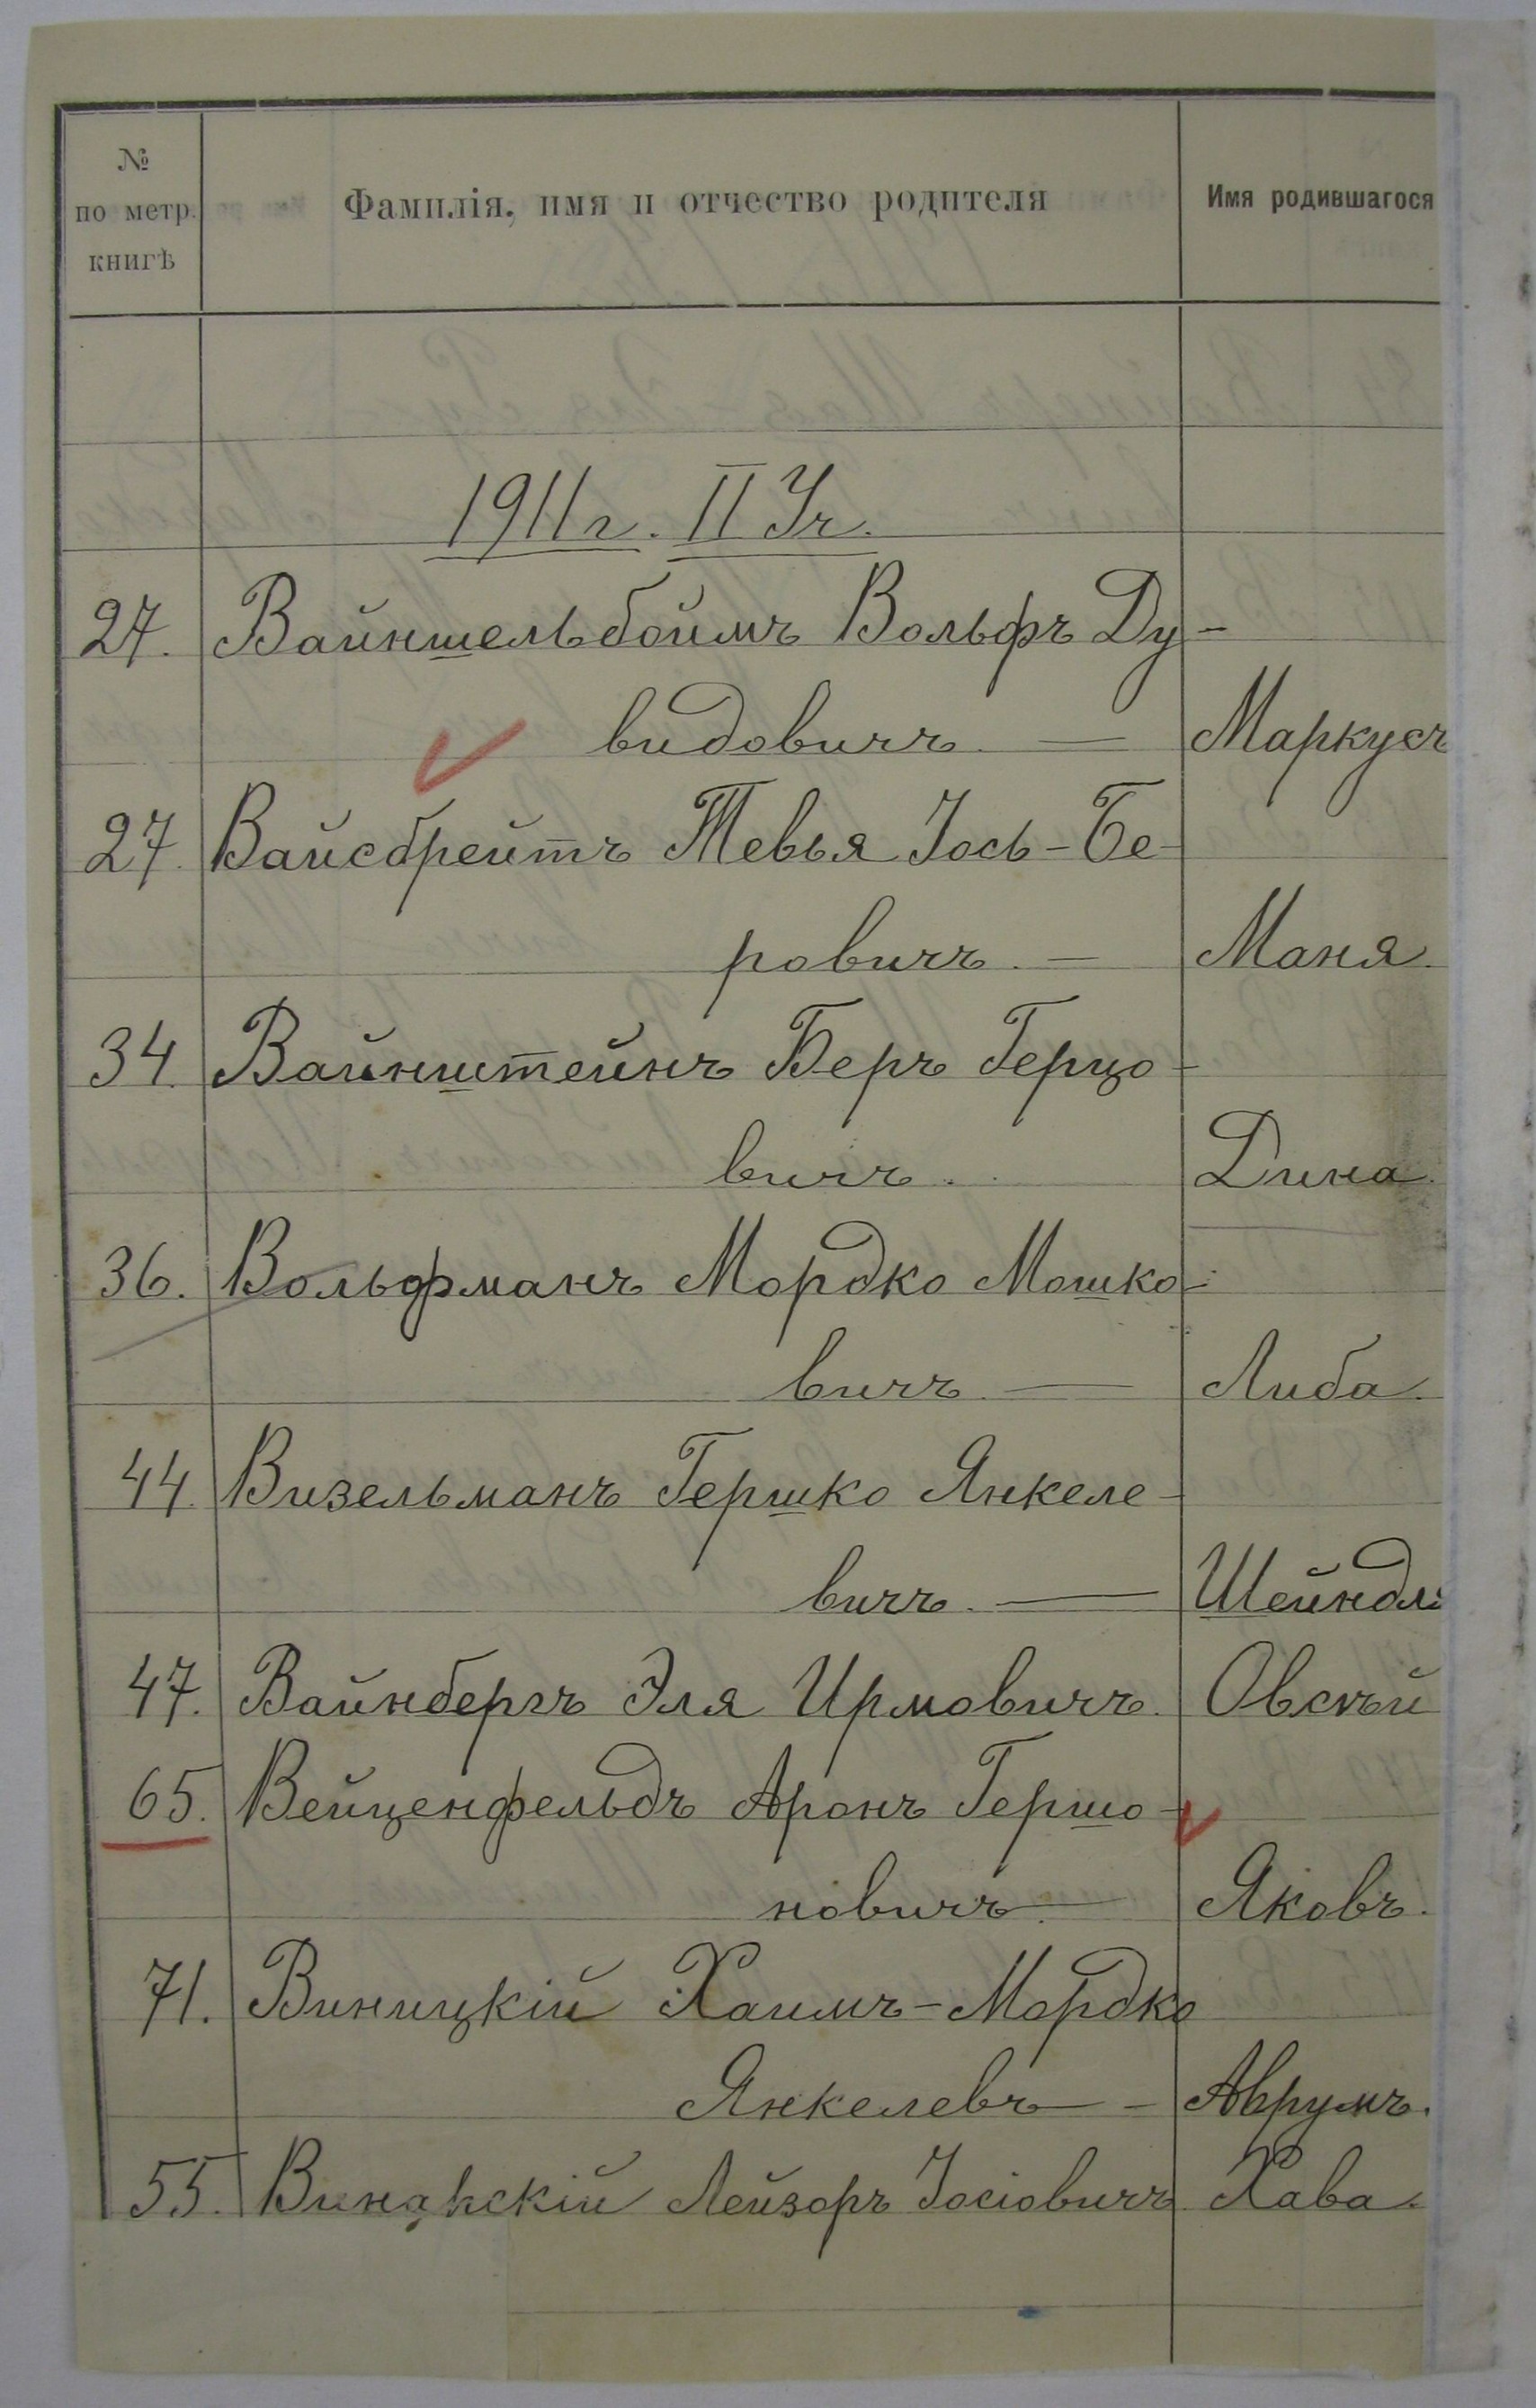 № по метр. книгѣ Фамилія, имя и отчество родителя Имя родившагося
1911 г. II Уч.
27. Вайншельбоймъ Вольфъ Ду-
видовичъ. — Маркусъ
27. Вайсбрейтъ Тевья Іось-Бе-
ровичъ. — Маня.
34. Вайнштейнъ Беръ Герцо-
вичъ. Дина.
36. Вольфманъ Мордко Мошко-
вичъ. — Либа.
44. Визельманъ Гершко Янкеле-
вичъ. — Шейндль
47. Вайнбергъ Эля Ирмовичъ. Овсѣй
65. Вейценфельдъ Аронъ Гершо-
новичъ. — Яковъ.
71. Виницкій Хаимъ-Мордко
Янкелевъ — Аврумъ.
55. Лейзоръ Іосіовичъ. Хава.